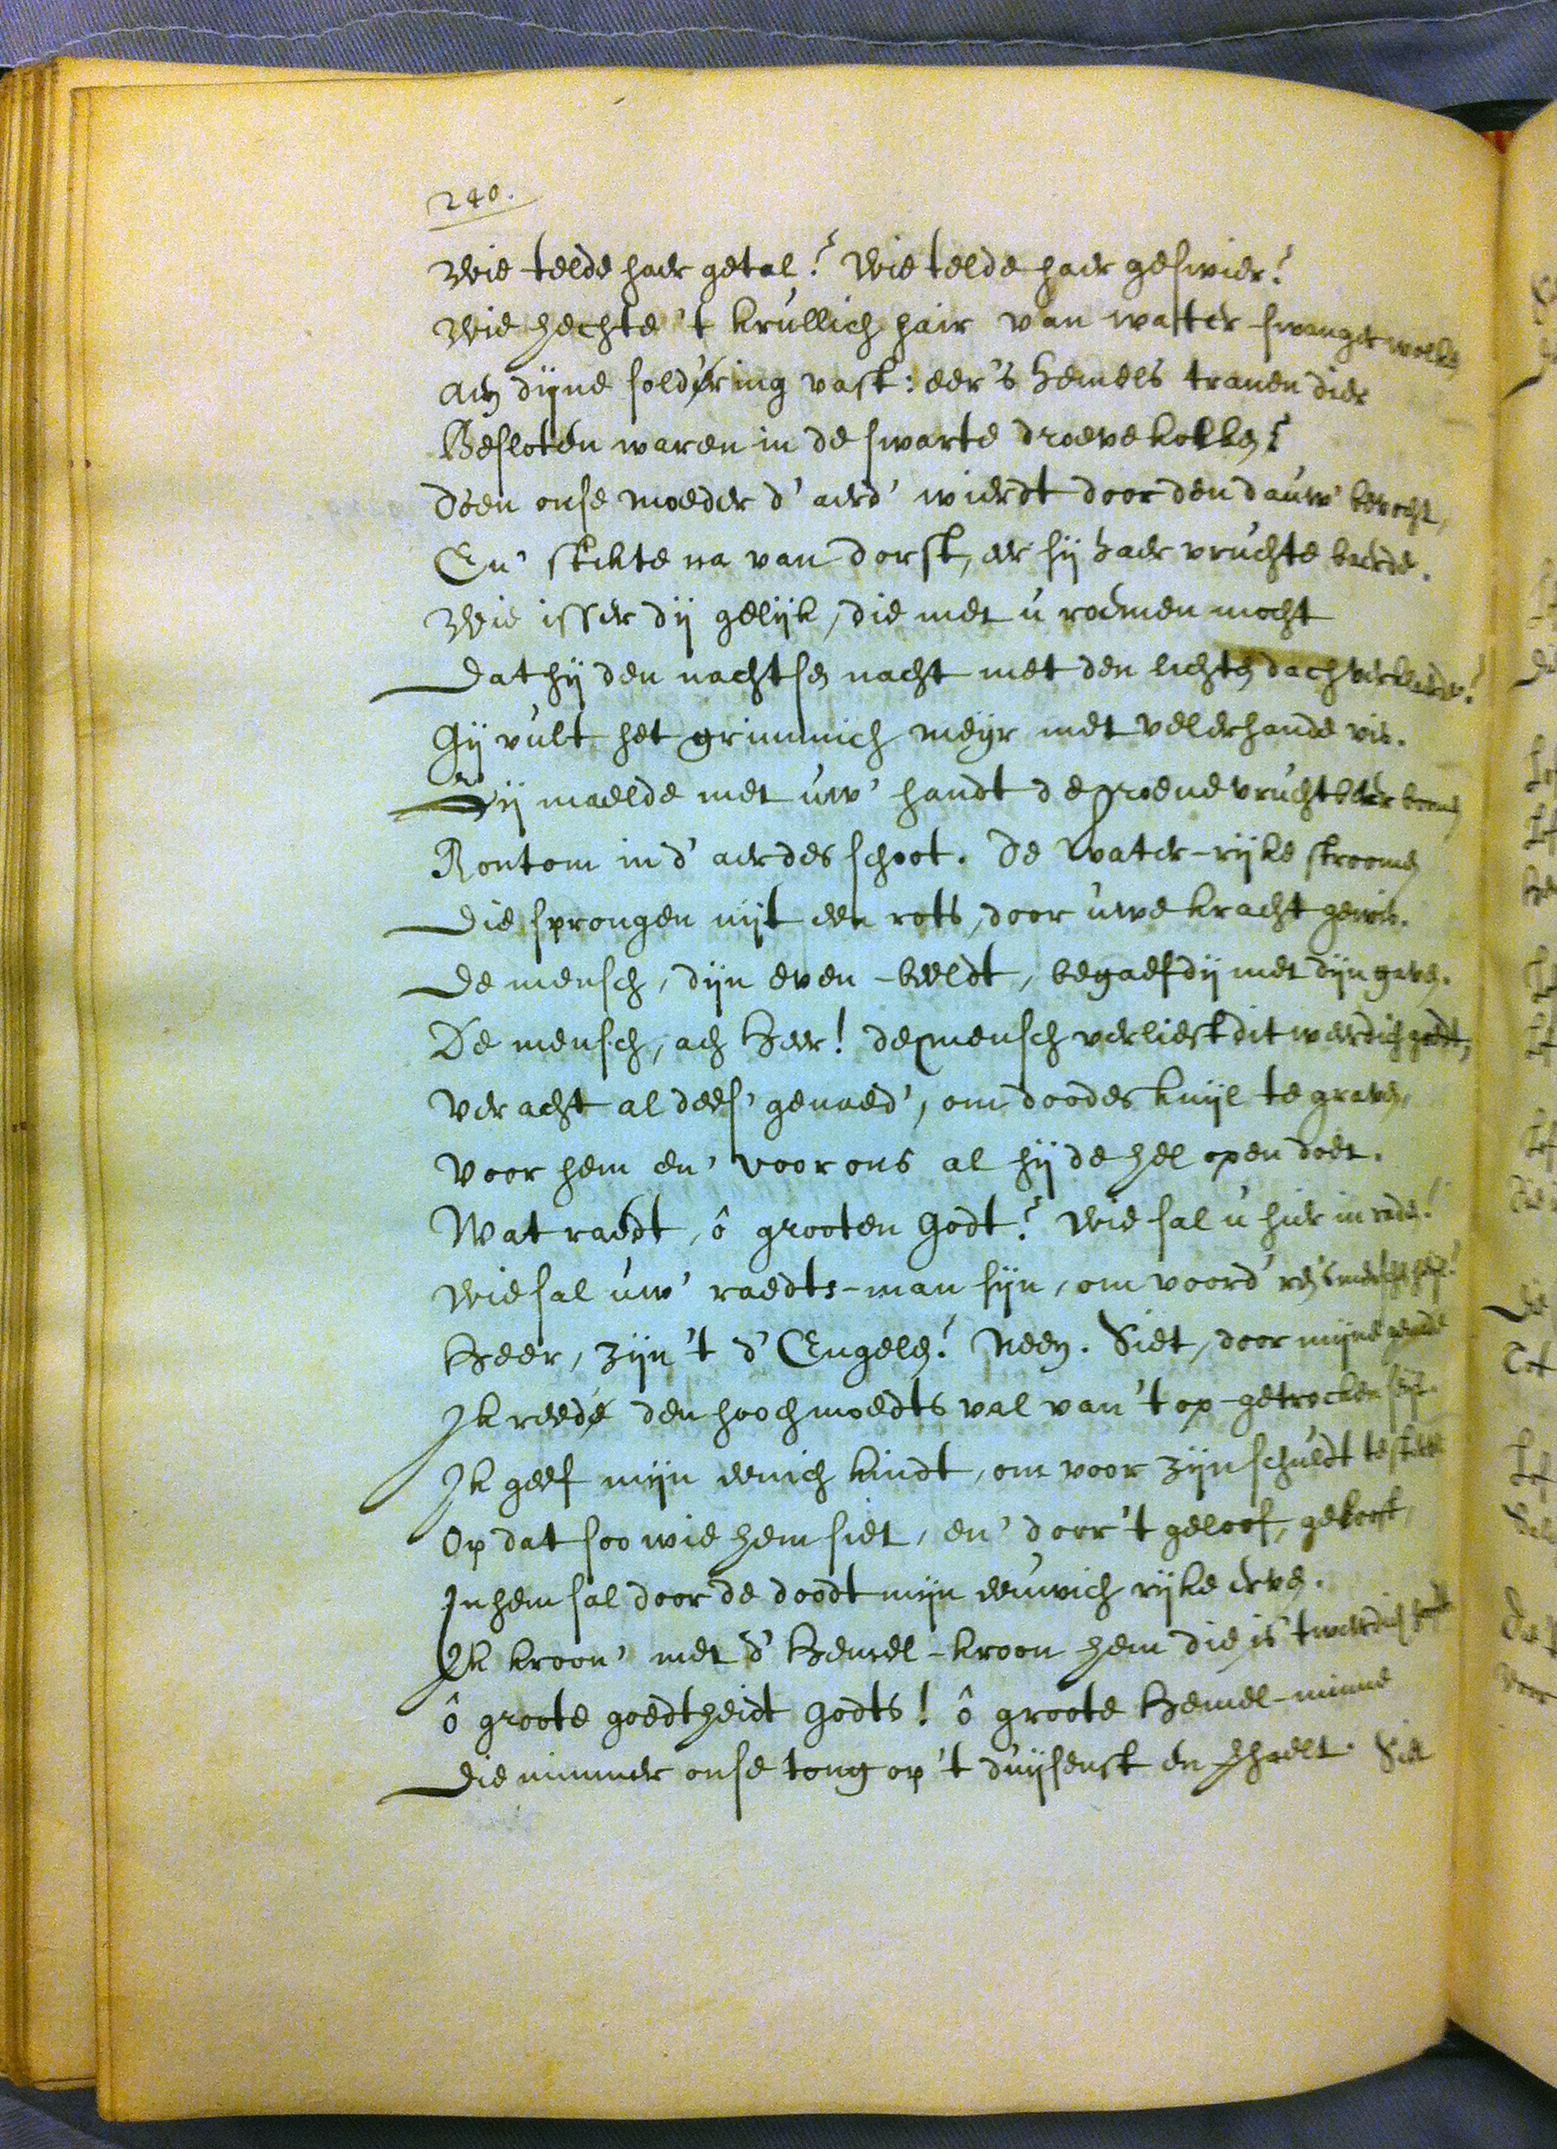 240.
Wie telde haer getal? Wie telde haer geswier?
Wie hechte 't krullich hair van watter-swanger wolken
Aen dijne soldering vast: eer 's hemels tranen dier
Gesloten waren in de swarte droeve kolken?
Doen onse moeder d' aerd' wierdt door den dauw' bevocht,
En' stikte na van dorst, eer sij haer vruchte baerde.
Wie isser dij gelijk, die met u roemen mocht
Dat hij den nachtsen nacht met den lichten dach verklaerde?
Gij vult het grimmich meijr met velerhande vis.
Gij maelde met uw' handt de groene vruchtbaer bomen
Rontom in d' aerdes schoot. De water-rijke stroomen
Die sprongen uijt een rots, door uwe kracht gewis.
De mensch, dijn even-beeldt, begaefdij met dijn gaven.
De mensch, ach Heer! de mensch verliest dit weerdich goedt,
Veracht al dees' genaed', om doodes kuijl te graven,
Voor hem en' voor ons al hij de hel open doet.
Wat raedt, ô grooten Godt? Wie sal u hier in raden?
Wie sal uw' raedts-man sijn, om voord'ren 's menschen heijl?
Heer, zijn 't d' Engelen? Neen. Siet, door mijne genade
Ik reede den hoochmoedts val van 't op-getrocken seijl.
Ik geef mijn eenich kindt, om voor zijn schuldt te sterven
Op dat soo wie hem siet, en' door 't geloof, gelooft,
In hem sal door de doodt mijn eeuwich rijke erven.
Ik kroon' met d' Hemel-kroon hem die is 't werdich hooft
ô groote goedtheidt Godts! ô groote Hemel-minne
Die nimmer onse tong op 't duijsenst en haelt. Siet